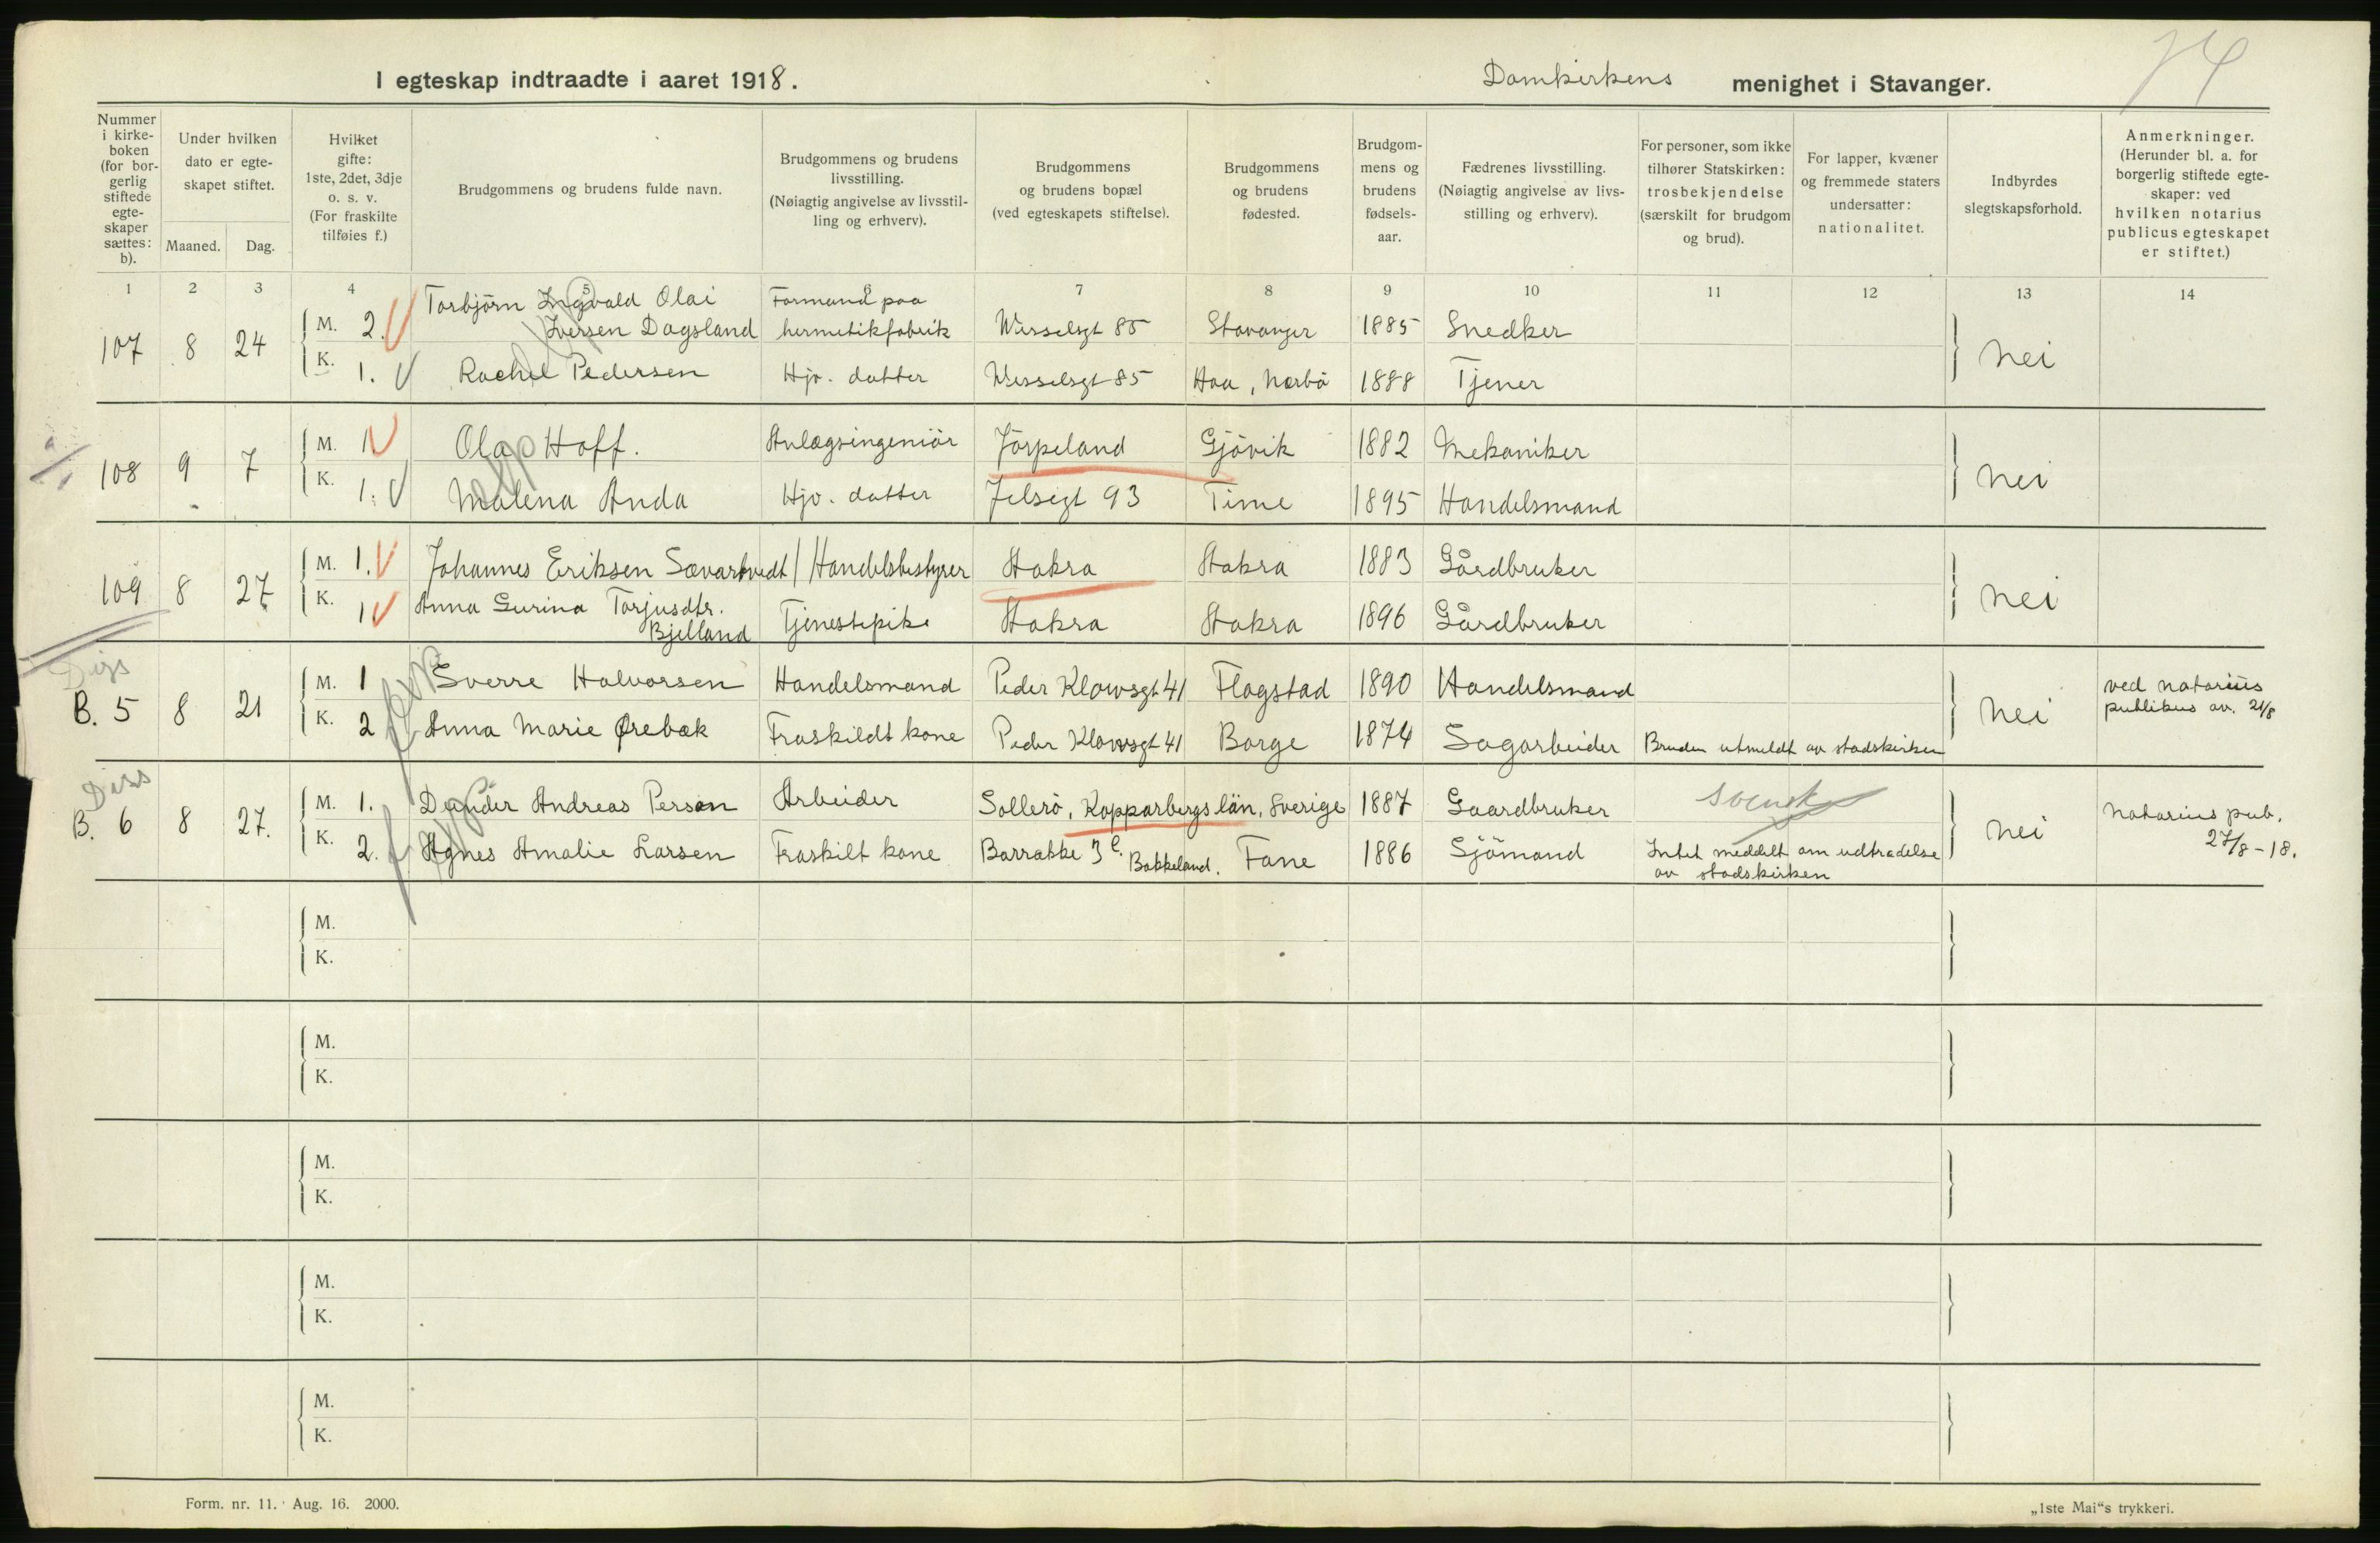 I egteskap indtraadte i aaret 1918. Domkirkens menighet i Stavanger.
74
Nummer i kirkeboken (for borgerlig stiftede egteskaper sættes: b).
Under hvilken dato er egteskapet stiftet.
Maaned. Dag.
Hvilket gifte: 1ste, 2det, 3dje o. s. v. (For fraskilte tilføies f.)
Brudgommens og brudens fulde navn.
Brudgommens og brudens livsstilling. (Nøiagtig angivelse av livsstilling og erhverv).
Brudgommens og brudens bopæl (ved egteskapets stiftelse).
Brudgommens og brudens fødested.
Brudgommens og brudens fødselsaar.
Fædrenes livsstilling. (Nøiagtig angivelse av livsstilling og erhverv).
For personer, som ikke tilhører Statskirken: trosbekjendelse (særskilt for brudgom og brud).
For lapper, kvæner og fremmede staters undersatter: nationalitet.
Indbyrdes slegtskapsforhold.
Anmerkninger. (Herunder bl. a. for borgerlig stiftede egteskaper: ved hvilken notarius publicus egteskapet er stiftet.)
1 2 3 4 5 6 7 8 9 10 11 12 13 14
107 8 24
M. 2. Torbjörn Ingvald Olai Iversen Dagsland Formand paa hermetikfabrik Wesselsgt 85 Stavanger 1885 Snedker
K. 1. Rachel Pedersen Hjv. datter Wesselsgt 85 Haa, Nærbö 1888 Tjener
nei
108 9 7
M. 1 Olaf Hoff. Anlægsingeniör Jörpeland Gjövik 1882 Mekaniker
K. 1. Malena Anda Hjv. datter Jelsegt 93 Time 1895 Handelsmand
nei
109 8 27
M. 1. Johannes Eriksen Sævartvedt Handelsbestyrer Stakra 1883 Gårdbruker
K. 1 Anna Gurina Torjusdtr. Bjelland Tjenestepike 1896 Gårdbruker
nei
B. 5 8 21
M. 1 Sverre Halvorsen Handelsmand Peder Klowsgt 41 Flagstad 1890 Handelsmand
K. 2 Anna Marie Ørebæk Fraskildt kone Peder Klowsgt 41 Borge 1874 Sagarbeider Bruden utmeldt av stadskirken
nei
ved notarius publikus av. 21/8
B. 6 8 27.
M. 1. Dunder Andreas Person Arbeider Sollerö, Kopparbergs län, Sverige 1887 Gaardbruker svensk
K. 2. Agnes Amalie Larsen Fraskilt kone Barrakke 3 Bakkeland. Fane 1886 Sjömand Intet meddelt om udtrædelse av stadskirken
nei
Notarius pub. 27/8-18.
M.
K.
M.
K.
M.
K.
M.
K.
M.
K.
Form. nr. 11. Aug. 16. 2000.
„1ste Mai“s trykkeri.